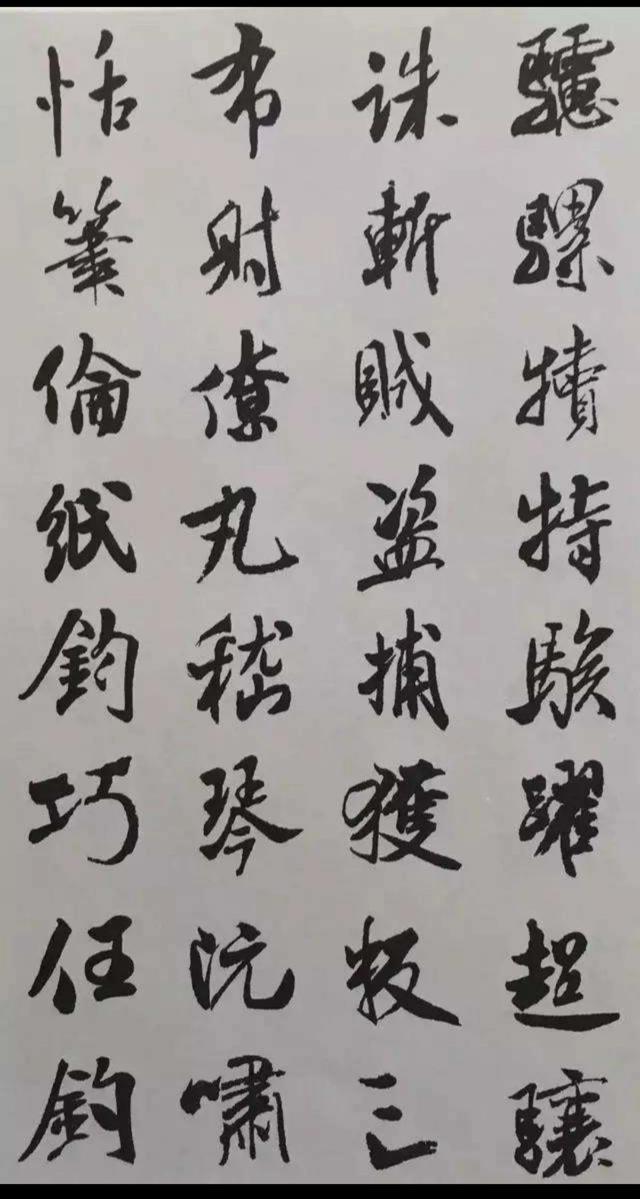 驢騾犢特駭躍超驤
誅斬賊盜捕獲叛亡
布射僚丸嵇琴阮嘯
恬筆倫紙鈞巧任釣